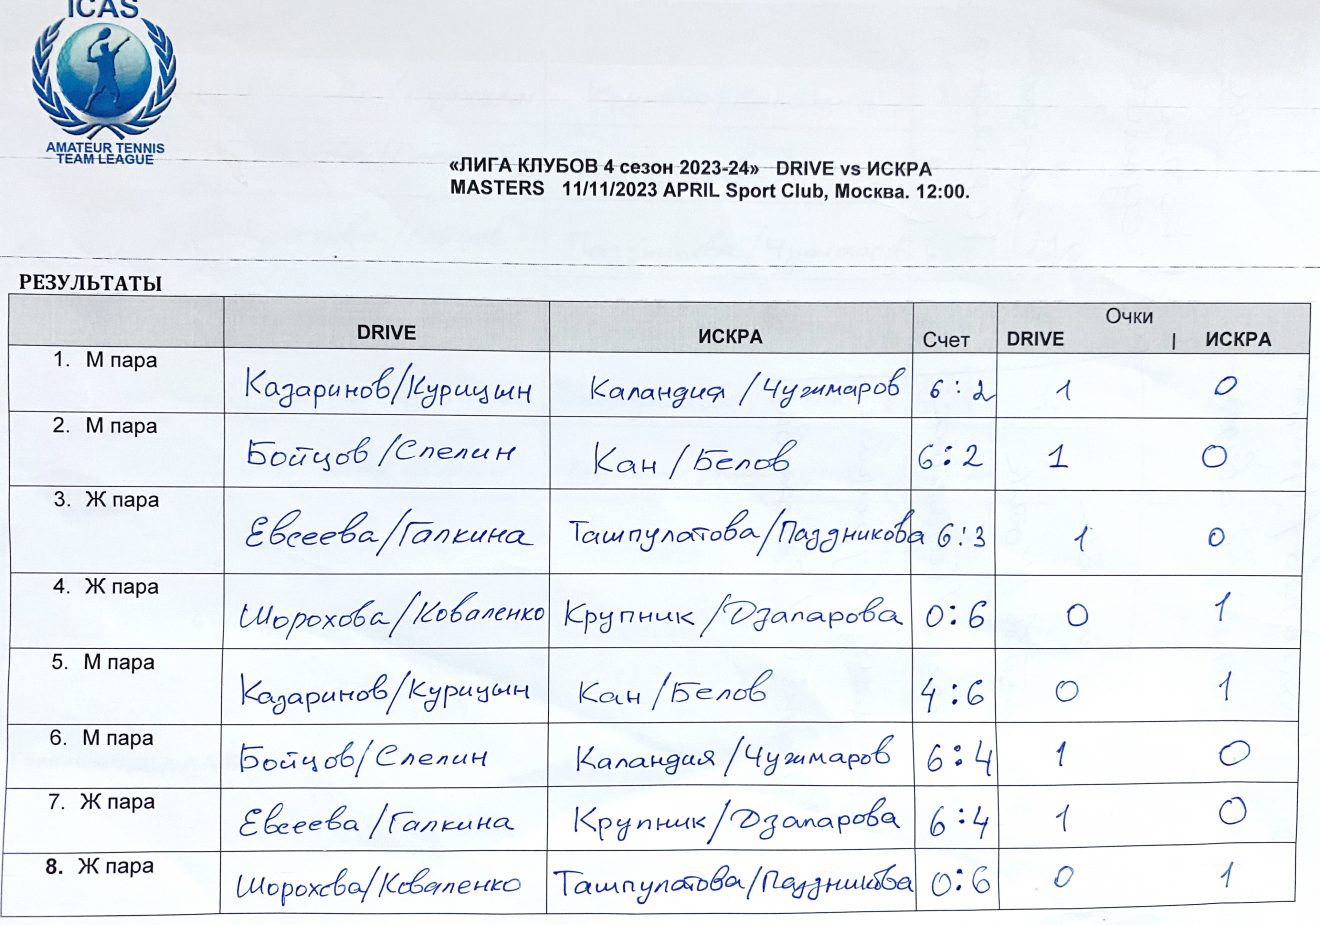 ICAS
AMATEUR TENNIS
TEAM LEAGUE
«ЛИГА КЛУБОВ 4 сезон 2023-24» DRIVE vs ИСКРА
MASTERS 11/11/2023 APRIL Sport Club, Москва. 12:00.
РЕЗУЛЬТАТЫ
DRIVE ИСКРА Счет Очки DRIVE | ИСКРА
1. М пара Казаринов/Курицын Каландия/Чугимаров 6:2 1 0
2. М пара Бойцов/Слепин Кан/Белов 6:2 1 0
3. Ж пара Евсеева/Галкина Ташпулатова/Паздникова 6:3 1 0
4. Ж пара Шорохова/Коваленко Крупник/Дзапарова 0:6 0 1
5. М пара Казаринов/Курицын Кан/Белов 4:6 0 1
6. М пара Бойцов/Слепин Каландия/Чугимаров 6:4 1 0
7. Ж пара Евсеева/Галкина Крупник/Дзапарова 6:4 1 0
8. Ж пара Шорохова/Коваленко Ташпулатова/Паздникова 0:6 0 1